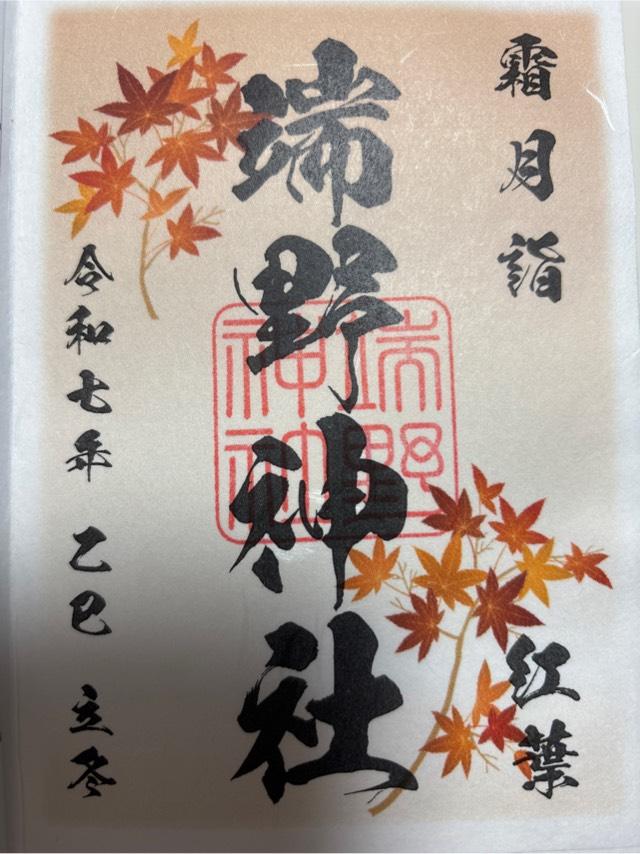 霜月詣
紅葉
端野神社
端野神社
令和七年 乙巳 立冬